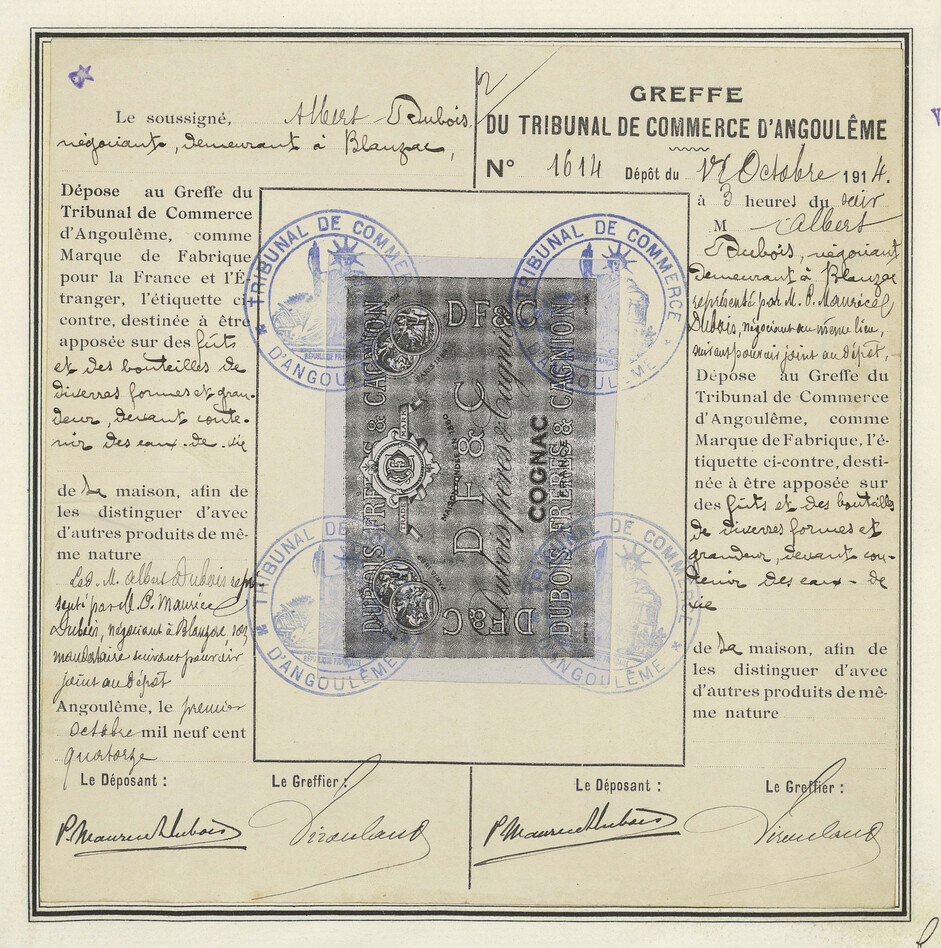 Le soussigné, Albert Dubois,
négociant, demeurant à Blanzac,
Dépose au Greffe du
Tribunal de Commerce
d'Angoulême, comme
Marque de Fabrique
pour la France et l'É-
tranger, l'étiquette ci-
contre, destinée à être
apposée sur des fûts
et des bouteilles de
diverses formes et gran-
deur, devant conte-
nir des eaux-de-vie
de la maison, afin de
les distinguer d'avec
d'autres produits de mê-
me nature
Led. M. Albert Dubois repré-
senté par M. P. Maurice
Dubois, négociant à Blanzac son
mandataire suivant pouvoir
joint au dépôt
Angoulême, le premier
Octobre mil neuf cent
quatorze
Le Déposant :
Le Greffier :
P. Maurice Dubois
GREFFE
DU TRIBUNAL DE COMMERCE D'ANGOULÊME
N° 1614 Dépôt du Octobre 1914.
à 3 heures du soir
M Albert
Dubois, négociant
demeurant à Blanzac
représenté par M. P. Maurice
Dubois, négociant au même lieu,
suivant pouvoir joint au dépôt,
Dépose au Greffe du
Tribunal de Commerce
d'Angoulême, comme
Marque de Fabrique, l'é-
tiquette ci-contre, desti-
née à être apposée sur
des fûts et des bouteilles
de diverses formes et
grandeur, devant con-
tenir des eaux-de
vie
de la maison, afin de
les distinguer d'avec
d'autres produits de mê-
me nature
Le Déposant :
Le Greffier :
P. Maurice Dubois
DUBOIS FRÈRES & CAGNION
DF&C
DF&C
TRADE MARK
MAISON FONDÉE EN
D F & C
Dubois frères & Cagnion
COGNAC
FRANCE
DUBOIS FRÈRES & CAGNION
TRIBUNAL DE COMMERCE
D'ANGOULÊME
RÉPUBLIQUE FRANÇAISE
TRIBUNAL DE COMMERCE
D'ANGOULÊME
TRIBUNAL DE COMMERCE
D'ANGOULÊME
RÉPUBLIQUE FRANÇAISE
TRIBUNAL DE COMMERCE
D'ANGOULÊME